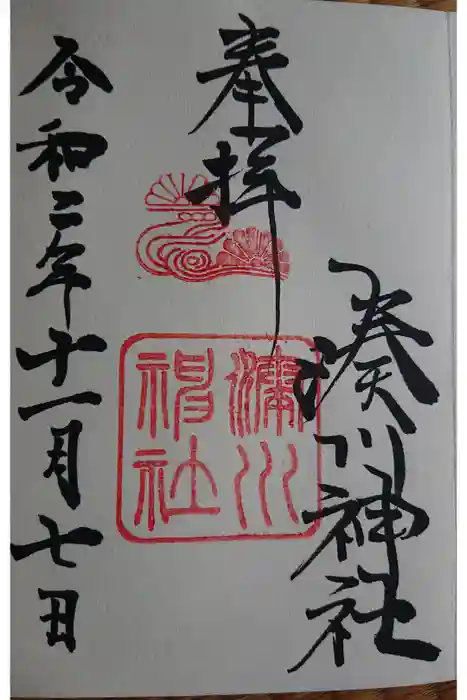 奉拝
湊川神社
湊川神社
令和二年十一月七日